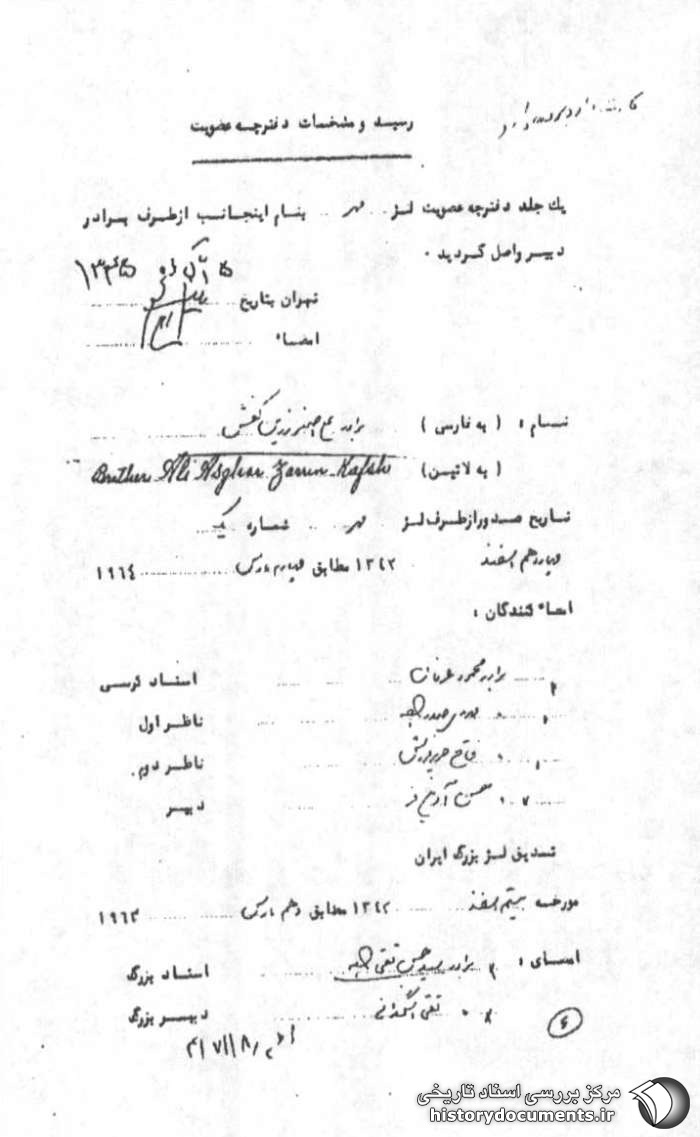 رسید و مشخصات دفترچه عضویت
یك جلد دفترچه عضویت لژ .. مهر .. بنام اینجانب از طرف برادر
دبیر واصل گردید .
۵ آبان ماه ۱۳۴۵
تهران بتاریخ
امضاء
نام : ( به فارسی ) برادر علی اصغر زرین کفش
( به لاتین ) Brother Ali Asghar Zarrin-Kafsh
تاریخ صدور از طرف لژ .. مهر .. شماره یک
چهاردهم اسفند ۱۳۴۲ مطابق چهارم مارس ۱۹۶۴
امضاء کنندگان :
برادر محمود عرفان استاد کرسی
ناظر اول
فتاح ناظر دوم
محسن دبیر
تصدیق لژ بزرگ ایران
مورخه بیستم اسفند ۱۳۴۲ مطابق دهم مارس ۱۹۶۳
امضای : برادر سید حسن تقی زاده استاد بزرگ
تقی اسکندانی دبیر بزرگ
۴
مرکز بررسی اسناد تاریخی
historydocuments.ir